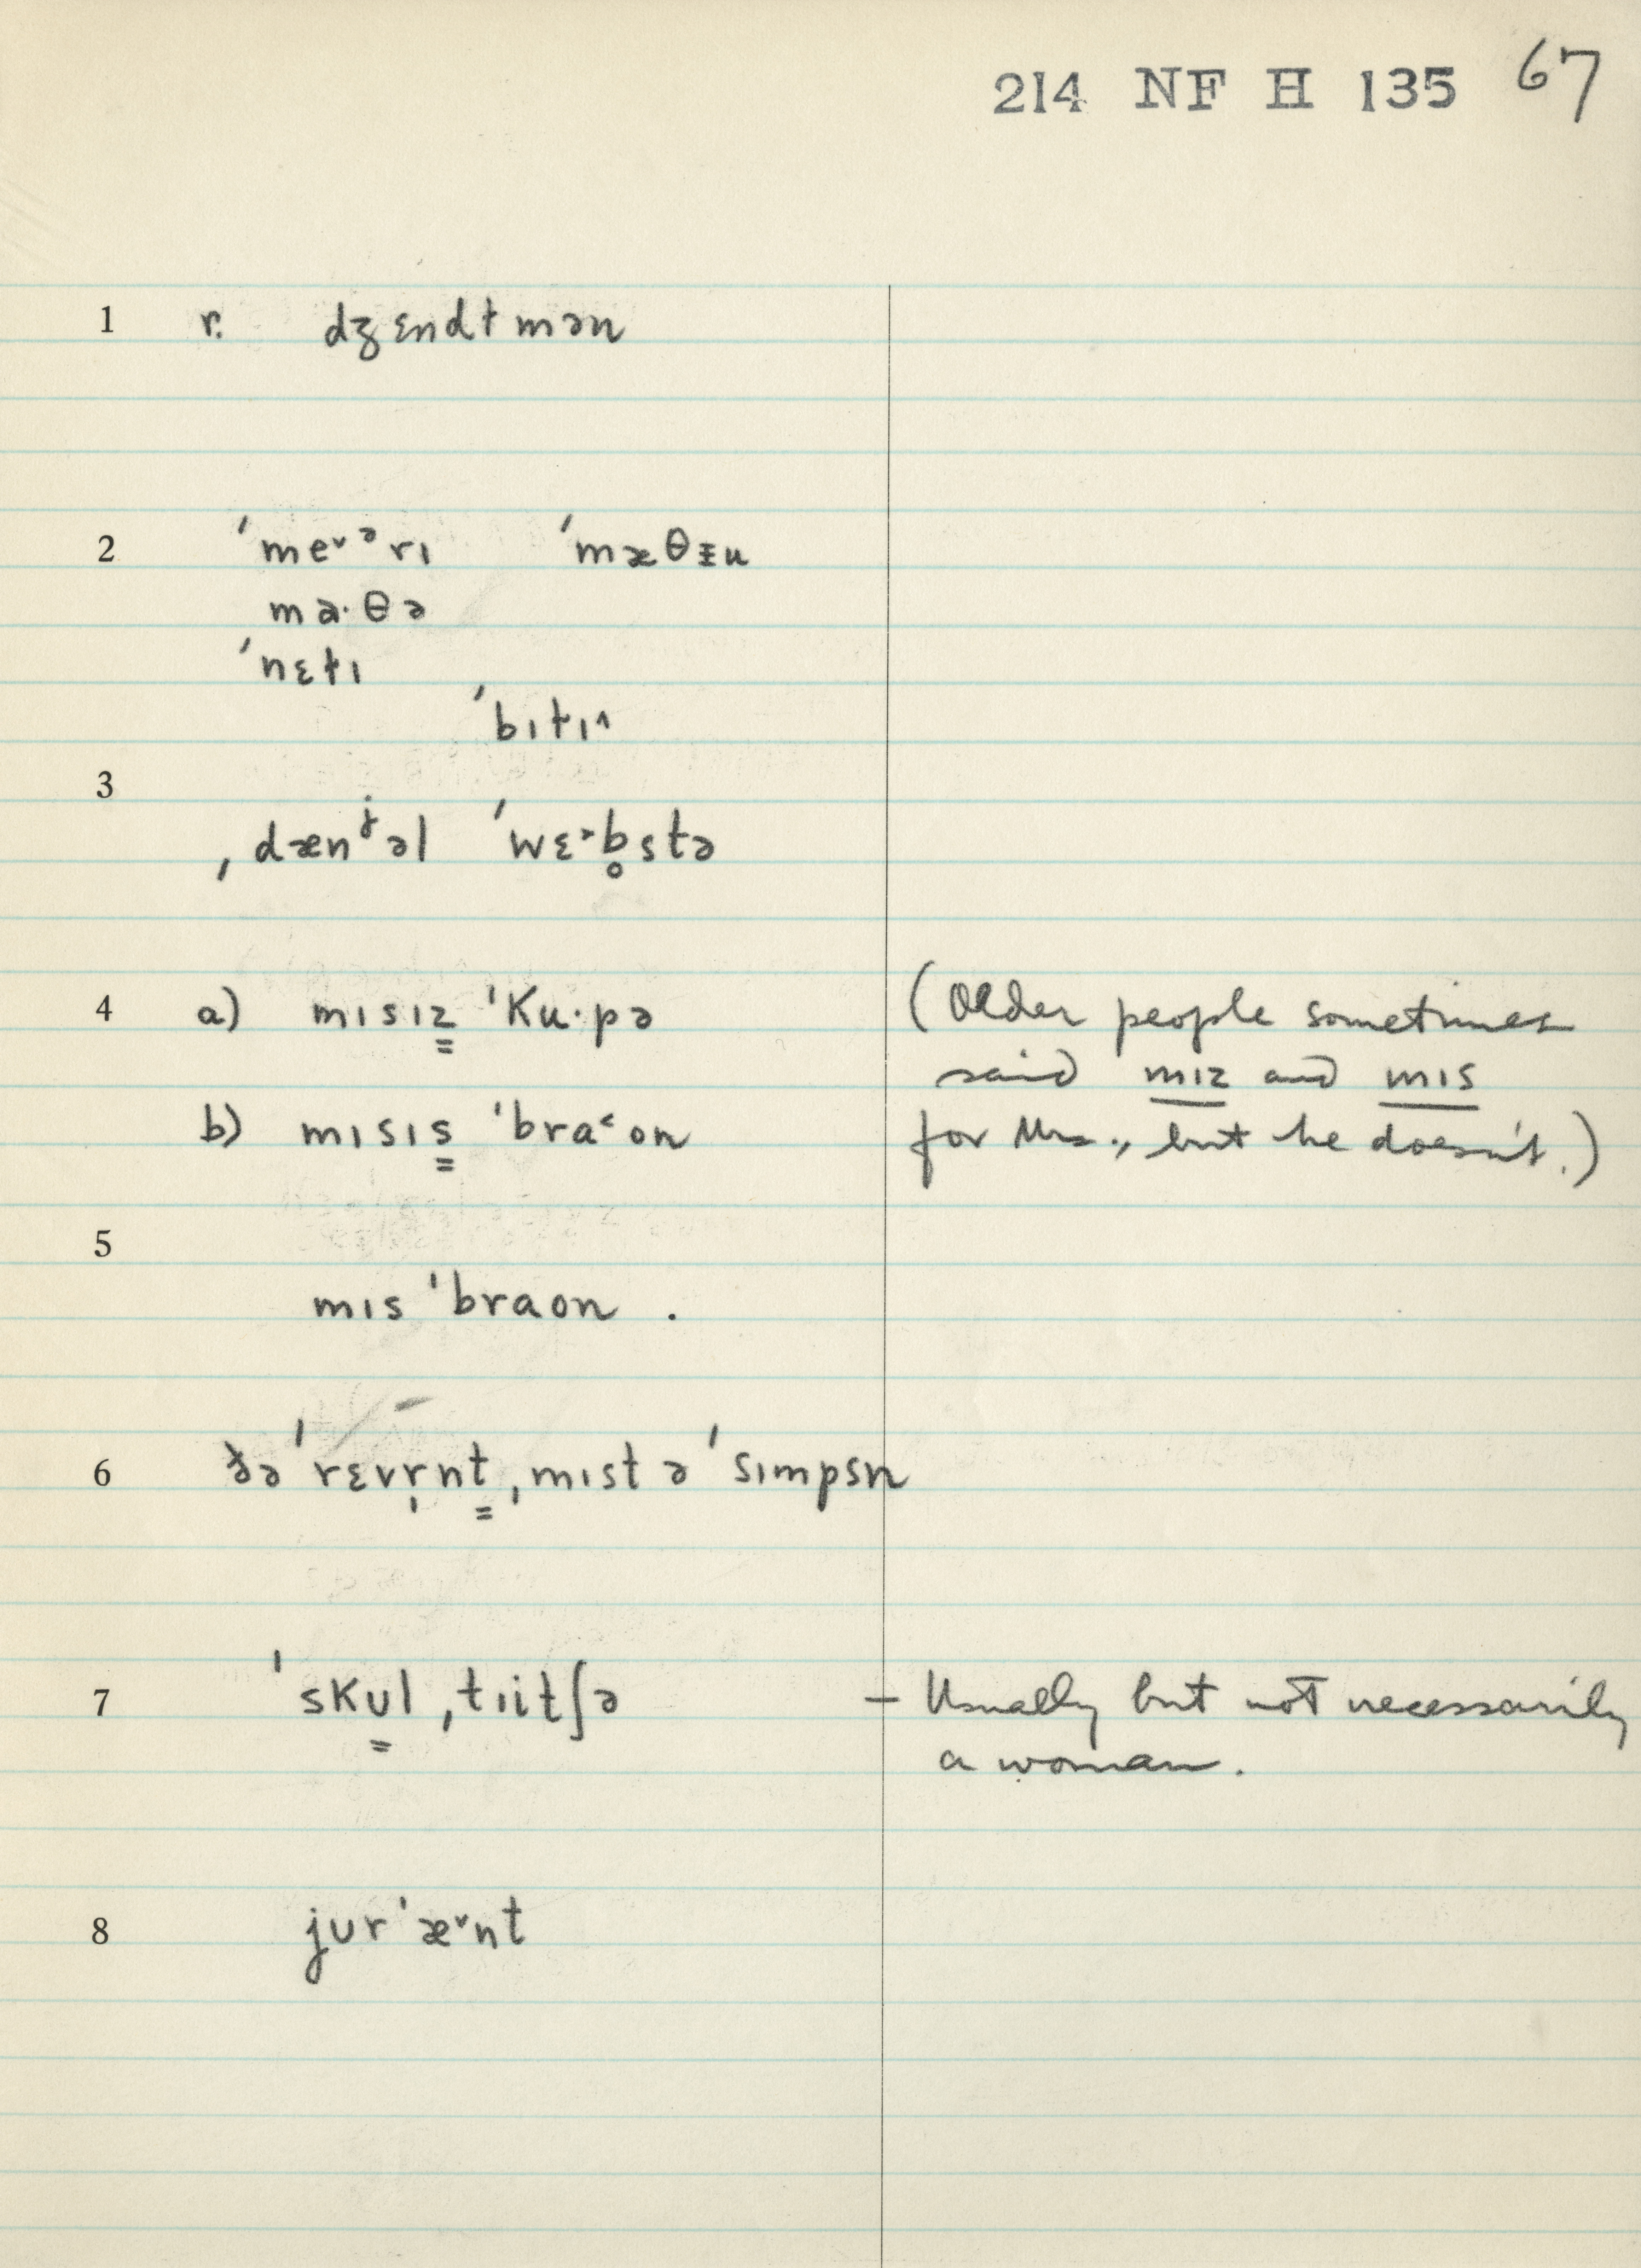 214 NF H 135 67
1 r. dʒɛndɫmən
2 ˈme˅ᵊrɪ ˈmæθɪ̵u
ma·θə
ˈnɛɫɪ
ˈbɪtɪ^
3
ˌdænʲəl ˈwɛ˃b̥stə
4 a) mɪsɪz͇ ˈKu·pə (Older people sometimes
said mɪz and mɪs
b) mɪsɪs͇ ˈbra˂on for Mrs., but he doesn't.)
5
mɪs ˈbraon .
6 ðə ˈrɛvr̩nt͇ ˌmɪstə ˈsɪmpsn
7 ˈsKu͇l ˌtɪitʃə – Usually but not necessarily
a woman.
8 jʊrˈæ˅nt